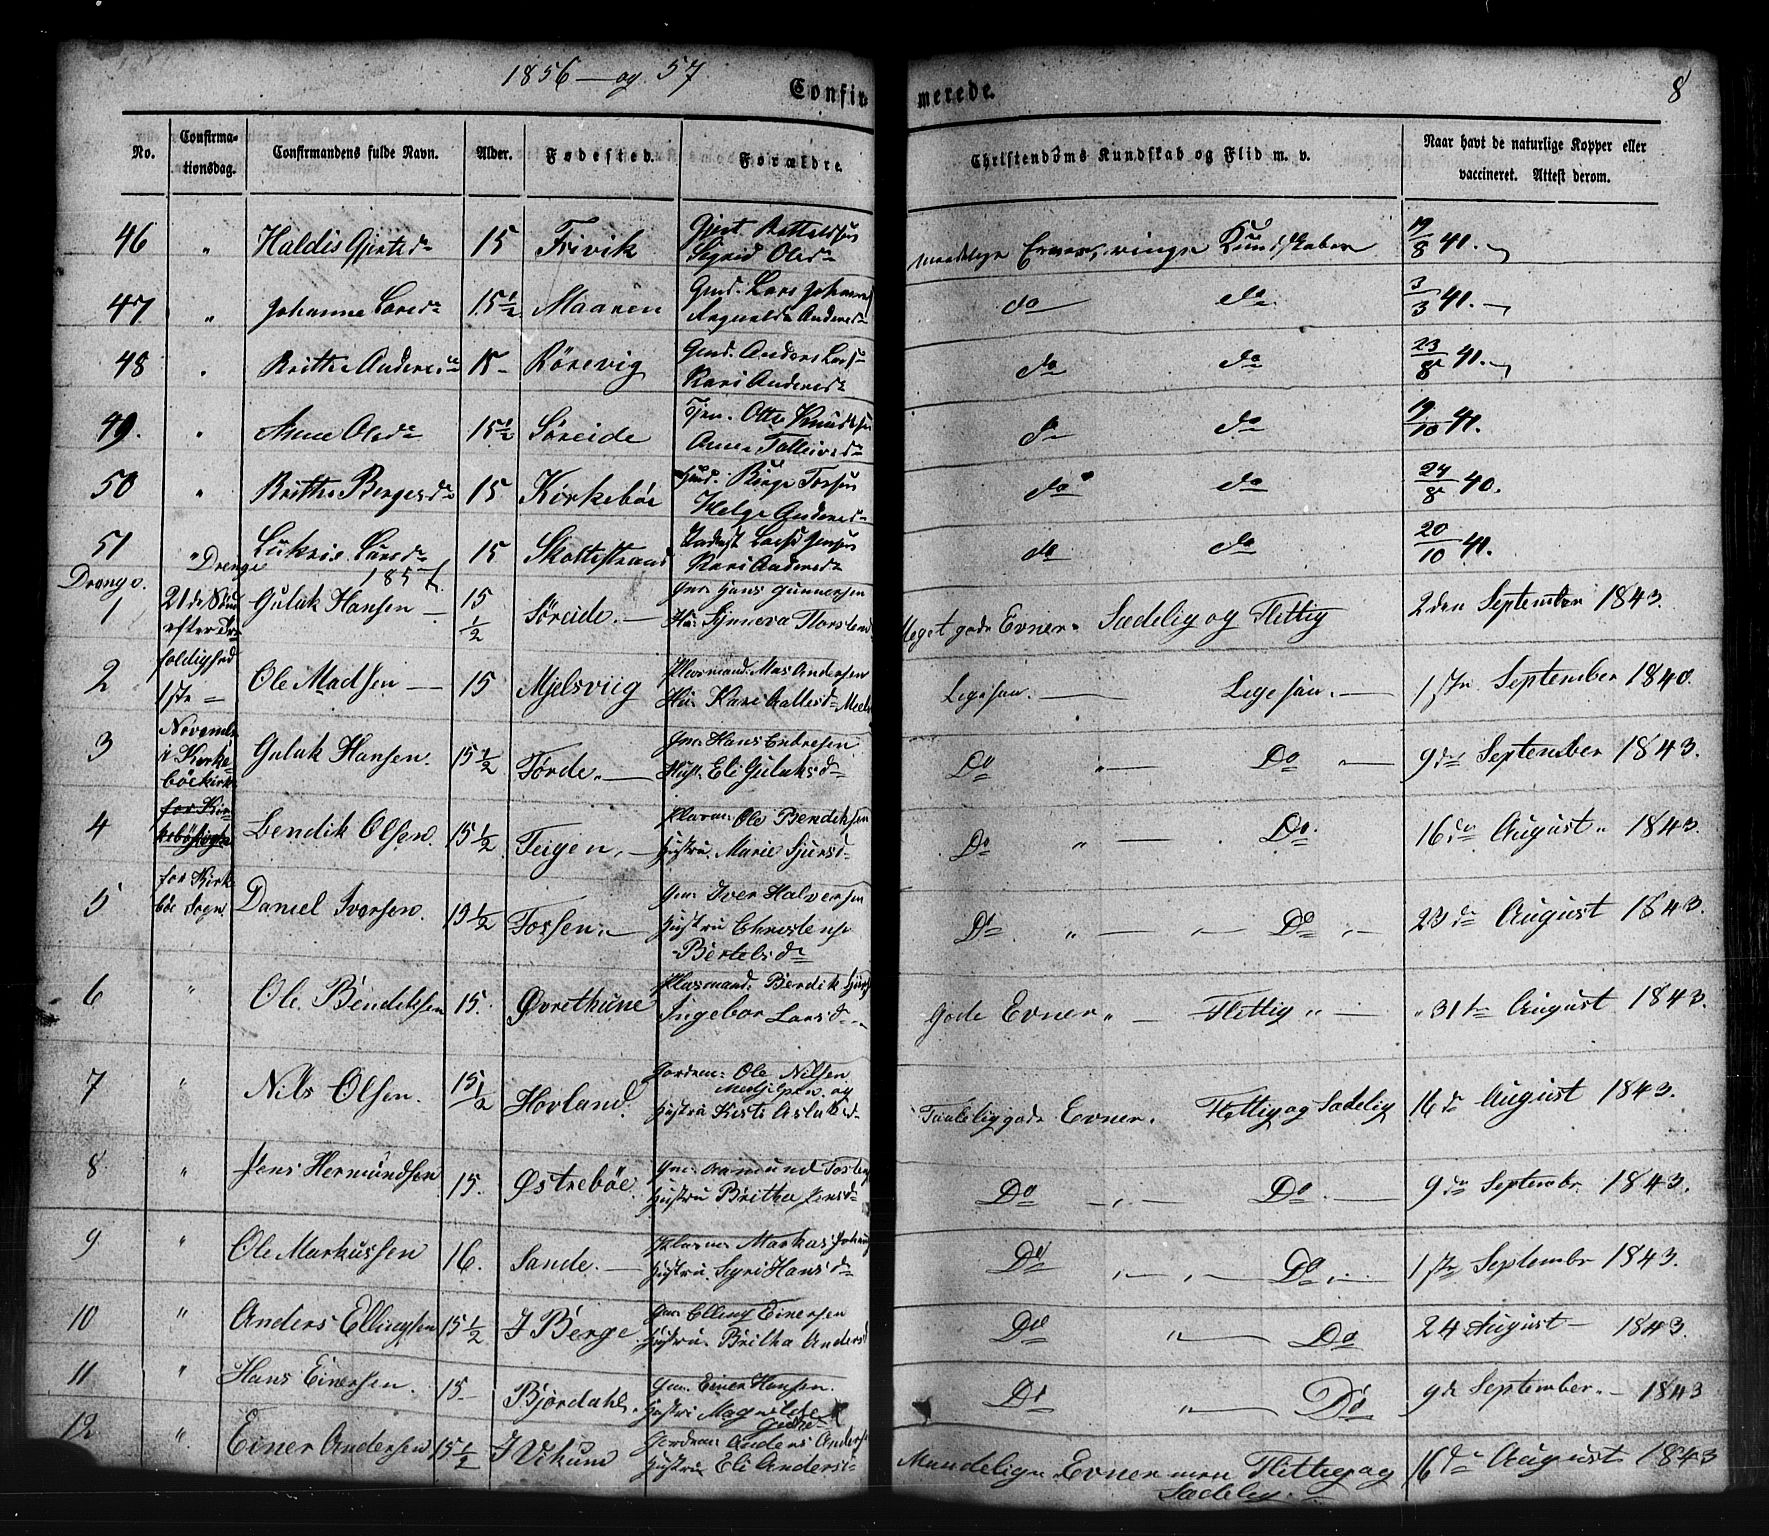 1856 — og 57
Confirmerede.
8
No.
Confirmationsdag.
Confirmandens fulde Navn.
Alder.
Fødested.
Forældre.
Christendoms Kundskab og Flid m. v.
Naar havt de naturlige Kopper eller vaccineret. Attest derom.
46 " Haldis Gjertsd. 15 Trivik
Sigrid Olsd.
maadelige Evner, ringe Kundskaber 19/8 41.
47 " Johanne Larsd. 15½ Maaren Gmd. Lars Johannes
Ragnilda Andersd.
do do 3/3 41.
48 " Brithe Andersd. 15 - Rørevig Gmd. Anders Lars
Kari Andersd.
do do 23/8 41.
49. " Anne Olsd. 15½ Søreide Tjen. Otte Knuds
Anne
do do 19/10 41.
50 " Brithe Bergesd. 15 Kirkebøe Gmd. Birge
Helge Andersd.
do do 24/8 40.
51 " Larsd. 15
Kari Andersd.
do do 20/10 41.
Drenge 1857
Drenge.
1 21de Sønd efter Tre- Guluk Hansen — 15½ Søreide. — Gm: Hans Gunnersen
Hu: Synneva
Meget gode Evner. Sædelig og Flittig 2den September 1843.
2 foldighed 1ste Ole Madsen — 15 Mjelsviig Plasmand: Mas Andersen
Hu: Kari
Ligesaa. — Ligesaa. — 1ste September 1840.
3 November i Kirkebøe kirke Guluk Hansen. 15½ Førde. — Gm: Hans Endresen
Hust. Eli Guluksd.
Do " — Do — 9de September 1843.
4 Bendik Olsen. 15½ Teigen. — Ole Bendiksen
Hustru. Marie Sjursd.
Do " — Do. 16de August 1843.
5 for Kirkebøe Sogn Daniel Iversen. 15½ Fossen. — Gm: Iver Halversen
Hustru Christense
Bertelsd.
Do " — " — Do " — 23de August 1843.
6 " Ole Bendiksen 15. Øvrethune Plasmand. Bendik
Ingebor Larsd.
Gode Evner " — Flittig " — 31te August 1843.
7 " Nils Olsen. 15½ Hovland. Gordm: Ole Nilsen
og
Hustru
Taalelig gode Evner. Flittig og Sædelig 16de August 1843.
8 " Jens Hermundsen 15. Østrebøe. Gm:
Hustru Britha Jensd.
Do " — Do. — 9de September 1843.
9 " Ole Markussen 16. Sande. — Markus
Hustru. Sigri Hansd.
Do " — " — Do — 1ste September 1843.
10 " Anders Ellingsen 15½ I Berge Gm: Elling Einersen
Hustru Britha Andersd
Do " — Do 24 August — 1843.
11 " Hans Einersen. 15 - Bjordahl. Gm: Einer Hansen.
Hustru Magnilde
Do " — Do 9de September. — 1843
12 " Einer Andersen 15½ I Vikum Gordm: Anders Anders
Hustru Eli Andersd
Maadelige Evner men Flittig og
Sædelig. —
16de August 1843